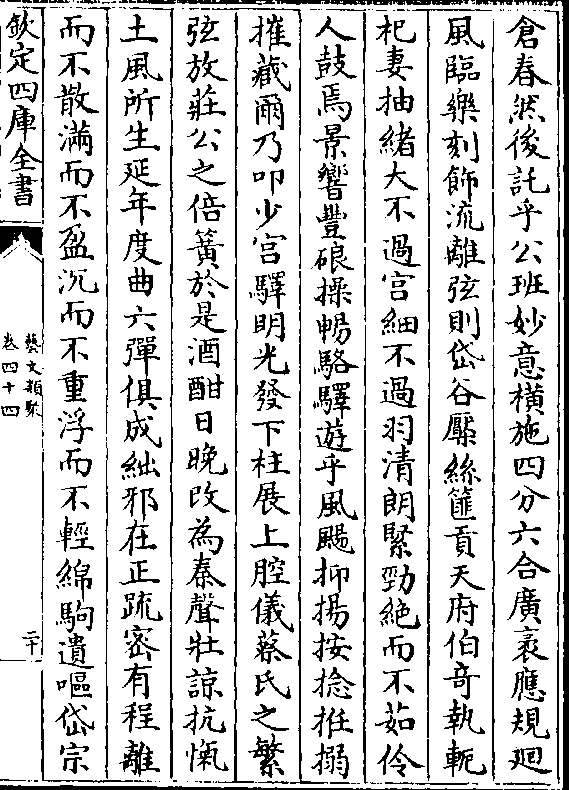 倉春然後託乎公班妙意横施四分六合廣袤應規廻
風臨樂刻飾流離弦則岱谷檿絲篚貢天府伯竒執軛
杞妻抽緒大不過宫細不過羽清朗緊勁絶而不茹伶
人鼓焉景響豐硠操暢駱驛遊乎風颺抑揚按捻摧搦
摧藏爾乃叩少宫驛明光發下柱展上腔儀蔡氏之繁
弦放莊公之倍簧於是酒酣日晚改為秦聲壯諒抗愾
土風所生延年度曲六彈俱成絀邪在正疏密有程離
而不散滿而不盈沉而不重浮而不輕綿駒遺嘔岱宗
欽定四庫全書
藝文類聚
卷四十四
二十